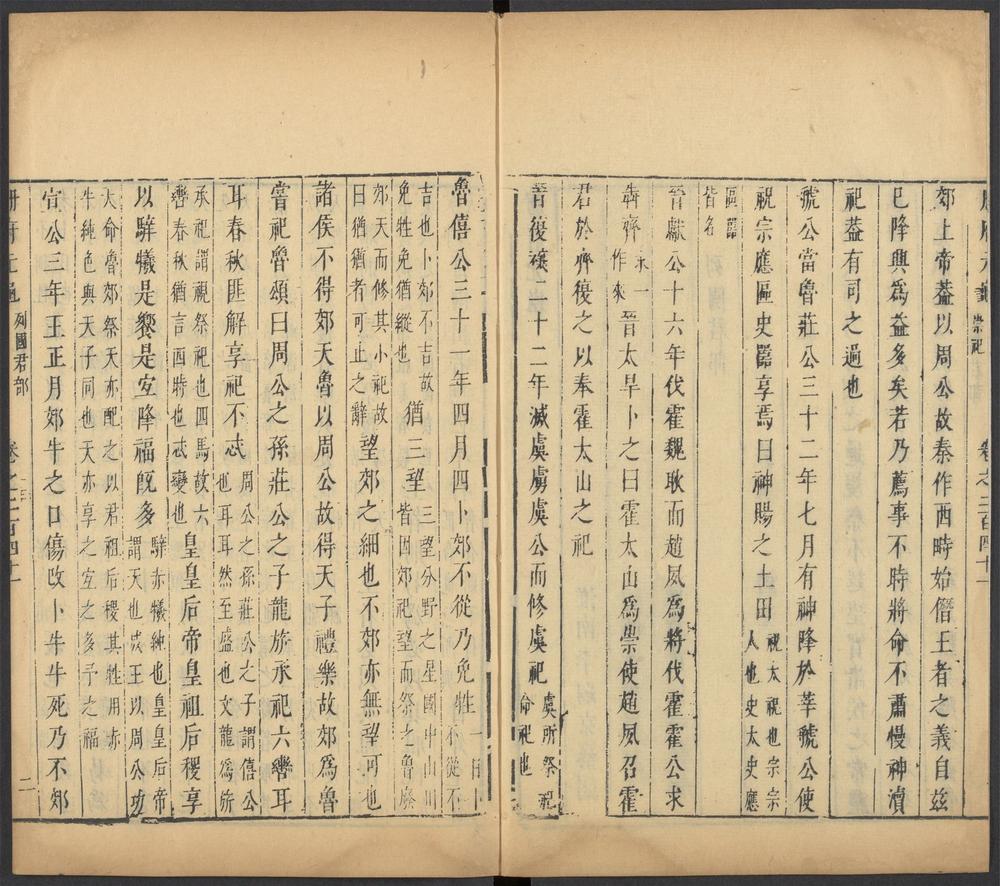 册府元龜 崇祀 卷之二百四十一
郊上帝葢以周公故秦作西時始僭王者之義自玆
巳降興爲益多矣若乃薦事不時將命不肅慢神瀆
祀葢有司之過也
虢公當魯莊公三十二年七月有神降於莘虢公使
祝宗應區史嚚享焉曰神賜之土田祝太祝也宗宗人也史太史應
區嚚皆名
晉獻公十六年伐霍魏耿而趙夙爲將伐霍霍公求
犇齊求一作來晉太旱卜之曰霍太山爲祟使趙夙召霍
君於齊復之以奉霍太山之祀
晉復襲二十二年滅虞虜虞公而修虞祀虞所祭祀命祀也
魯僖公三十一年四月四卜郊不從乃免牲不從不
吉也卜郊不吉故免牲免猶縱也猶三望三望分野之星國中山川皆因郊祀望而祭之魯廢
郊天而修其小祀故曰猶猶者可止之辭望郊之細也不郊亦無望可也
諸侯不得郊天魯以周公故得天子禮樂故郊爲魯
嘗祀魯頌曰周公之孫莊公之子龍旂承祀六轡耳
耳春秋匪解享祀不忒周公之孫莊公之子謂僖公也耳耳然至盛也交龍爲旂
承祀謂視祭祀也四馬故六轡春秋猶言四時也忒變也皇皇后帝皇祖后稷享
以騂犧是饗是宜降福旣多騂赤犧純也皇皇后帝謂天也成王以周公功
大命魯郊祭天亦配之以君祖后稷其牲用赤牛純色與天子同也天亦享之宜之多予之福
宣公三年王正月郊牛之口傷改卜牛牛死乃不郊
册府元龜 列國君部 卷之二百四十一 二